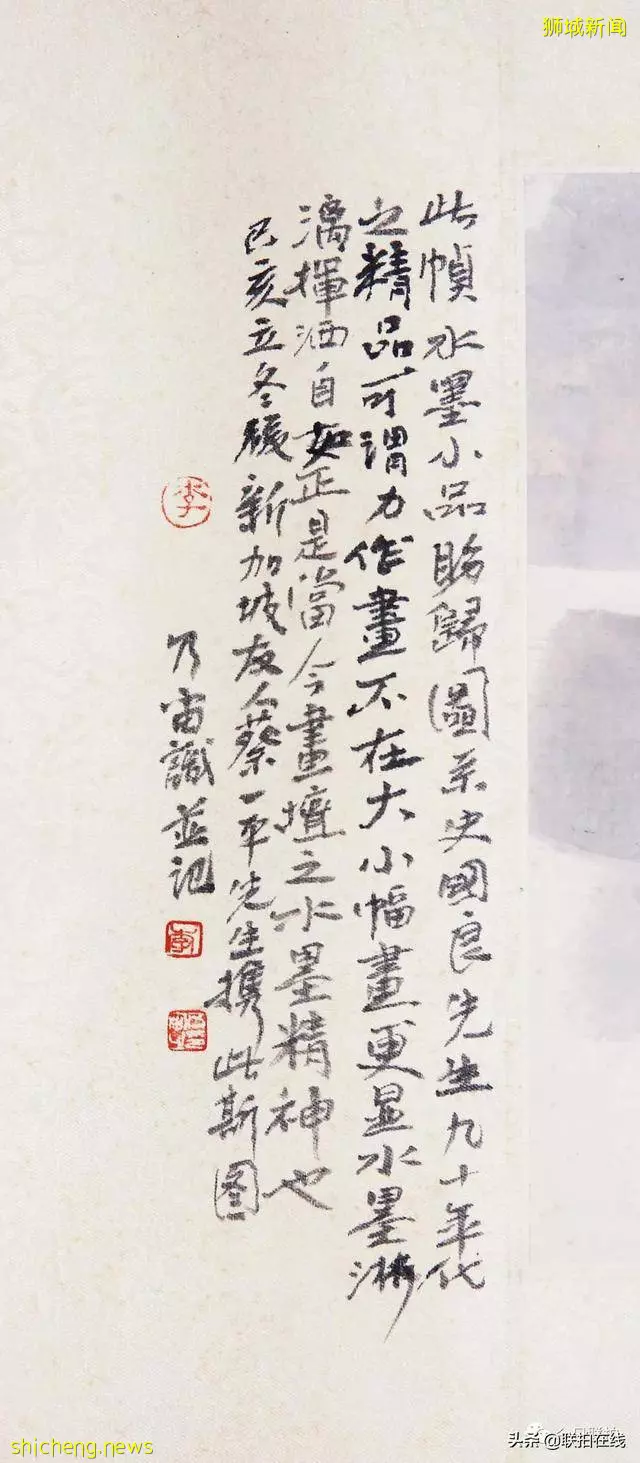 狮城新闻
此幀水墨小品盼歸圖系史國良先生九十年代
之精品可谓力作畫不在大小幅畫更显水墨淋
漓揮洒自如正是當今畫壇之水墨精神也
己亥立冬後新加坡友人蔡一平先生携此斯图
乃宙識並記
李
shicheng.news
头条@联拍在线